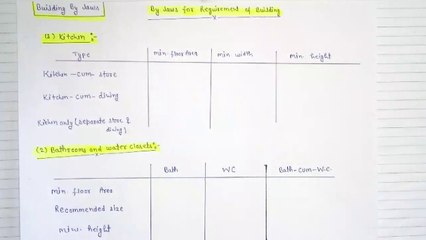 Building By laws
By laws for Requirement of Building
(1) Kitchen :-
Type min floor Area min width min height
Kitchen - cum - store
Kitchen - cum - dining
Kitchen only (separate store & dining)
(2) Bathrooms and water closets :-
Bath WC Bath-Cum-W.C.
Min. floor Area
Recommended size
min. height